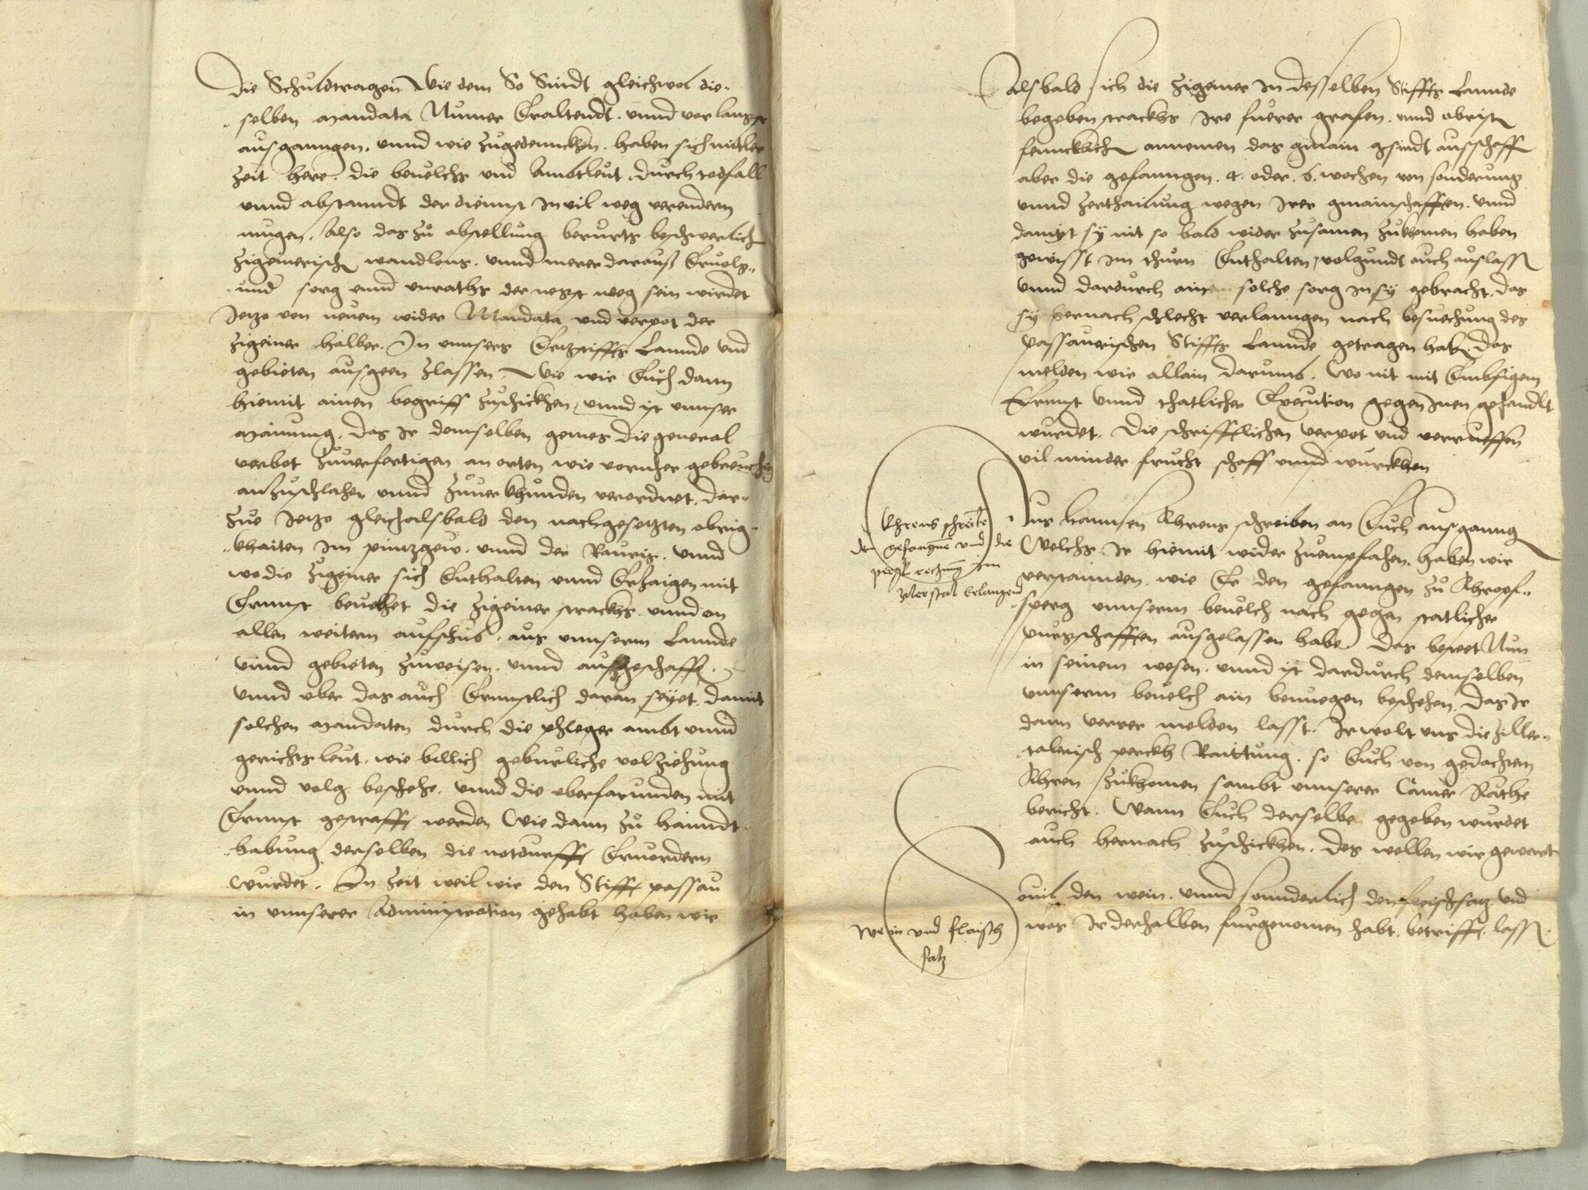 Die Schuldtragen Wie dem So Sindt gleichwol die-
selben Mandata Numer Eraltendt. unnd vor langst
ausganngen. unnd wie zugedennckhen. haben sich mitler
Zeit here. die beuelchs und Ambtleut durch todfall
unnd abstanndt der dienst in vil weg verendern
mugen. Also das zu abstellung berurts beschwerlich
Zigeinerisch wandlens. unnd merer daraus Eruolg-
und sorg unnd unraths der negst weg sein wirdet
Jetzo von neuem wider Mandata und verpot der
Zigeiner halber. In unnsers Ertzstiffts Lannde und
gebieten ausgeen zlassen Wie wir Euch dann
hiemit ainen begriff zuschickhen, unnd ist unnser
Mainung. Das Ir demselben gemes die general
verbot zuuerfertigen an orten wie vormher gebreuchig
anzuschlahen unnd zuuerkhunden verordnet. dar-
zue Jetzo gleich alsbald den nachgesetzten obrig-
khaiten im pintzgew. unnd der Rauris. unnd
wo die Zigeiner sich Enthalten unnd Erzaigen mit
Ernnst beuelhet die Zigeiner strackhs. unnd on
allen weitern aufschub. aus unnserm Lannde
unnd gebieten zuweisen. unnd ausgeschafft.
unnd ober das auch Ernnstlich daran seyet damit
solchen Mandaten durch die phleger ambt unnd
gerichts leut. wie billich geburliche volziehung
unnd volg beschehe. unnd die uberfarunden mit
Ernnst gestrafft werden Wie dann zu hanndt-
habung derselben die notdurfft Eruordern
wurdet. In Zeit weil wir den Stifft passau
in unnserer Administration gehabt haben wir
Alsbald sich die Zigeiner in desselben Stiffts Lannde
begeben strackhs Ire fuerer grafen. unnd obrist
fenncklich annemen das gmain gsindt ausschaffen
aber die gefanngen. 4. oder. 6. wochen von sonderung
unnd zerthailung wegen irer gmainschafften. unnd
damit sy nit so bald wider zusamen zukhomen haben
gewisst im thurn Enthalten, volgundt auch auslassen
unnd dardurch ain solche sorg in sy gebracht. das
sy hernach schlecht verlanngen nach besuechung des
Passauerischen Stiffts Lannde getragen haben Das
melden wir allain darumb. Wo nit mit Embsigem
Ernnst unnd thatlicher Execution gegen Inen gehandlt
wurdet. Die schrifftlichen verpot und verrueffen
vil minder frucht schaff unnd wurckhen
Khrens schreiben
der gefangne und die
Uns hannsen Khrens schreiben an Euch ausganng
Welchs Ir hiemit wider zuemphahen. haben wir
verstannden. wie Er den gefanngen zu Khropf-
sperg unnserm beuelch nach gegen statlicher
burgschafften ausgelassen habe Das beruet Nun
in seinem wesen. unnd ist dardurch demselben
unnserm beuelch ain benuegen beschehen. Das Ir
dann verrer melden lasst. Ir welt uns die Ziller-
talerisch perckh Raittung. so Euch von gedachten
Khren zukhomen sambt unnserer Camer Räthe
bericht. Wann Euch derselbe gegeben wurdet
auch hernach zuschickhen. Des wellen wir gewart
Wein und flaisch
satz
Souil den wein. unnd sonnderlich den fleischsatz und
was Ir derhalben furgenomen habt. betrifft. lassen